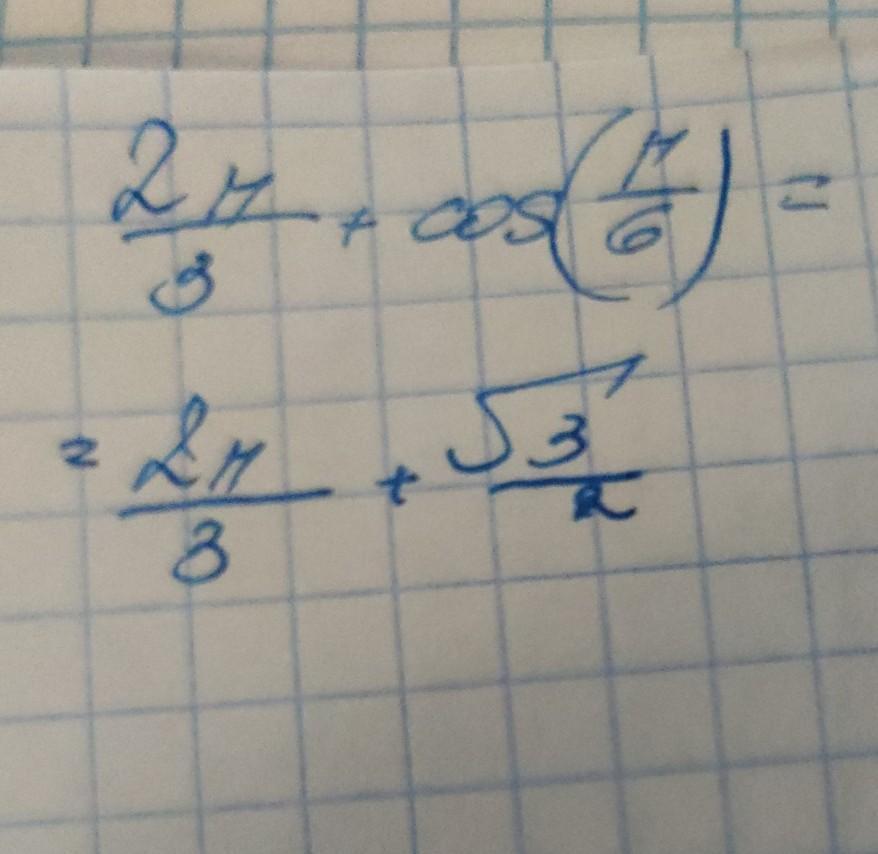 2π/3 + cos(π/6) =
= 2π/3 + √3/2